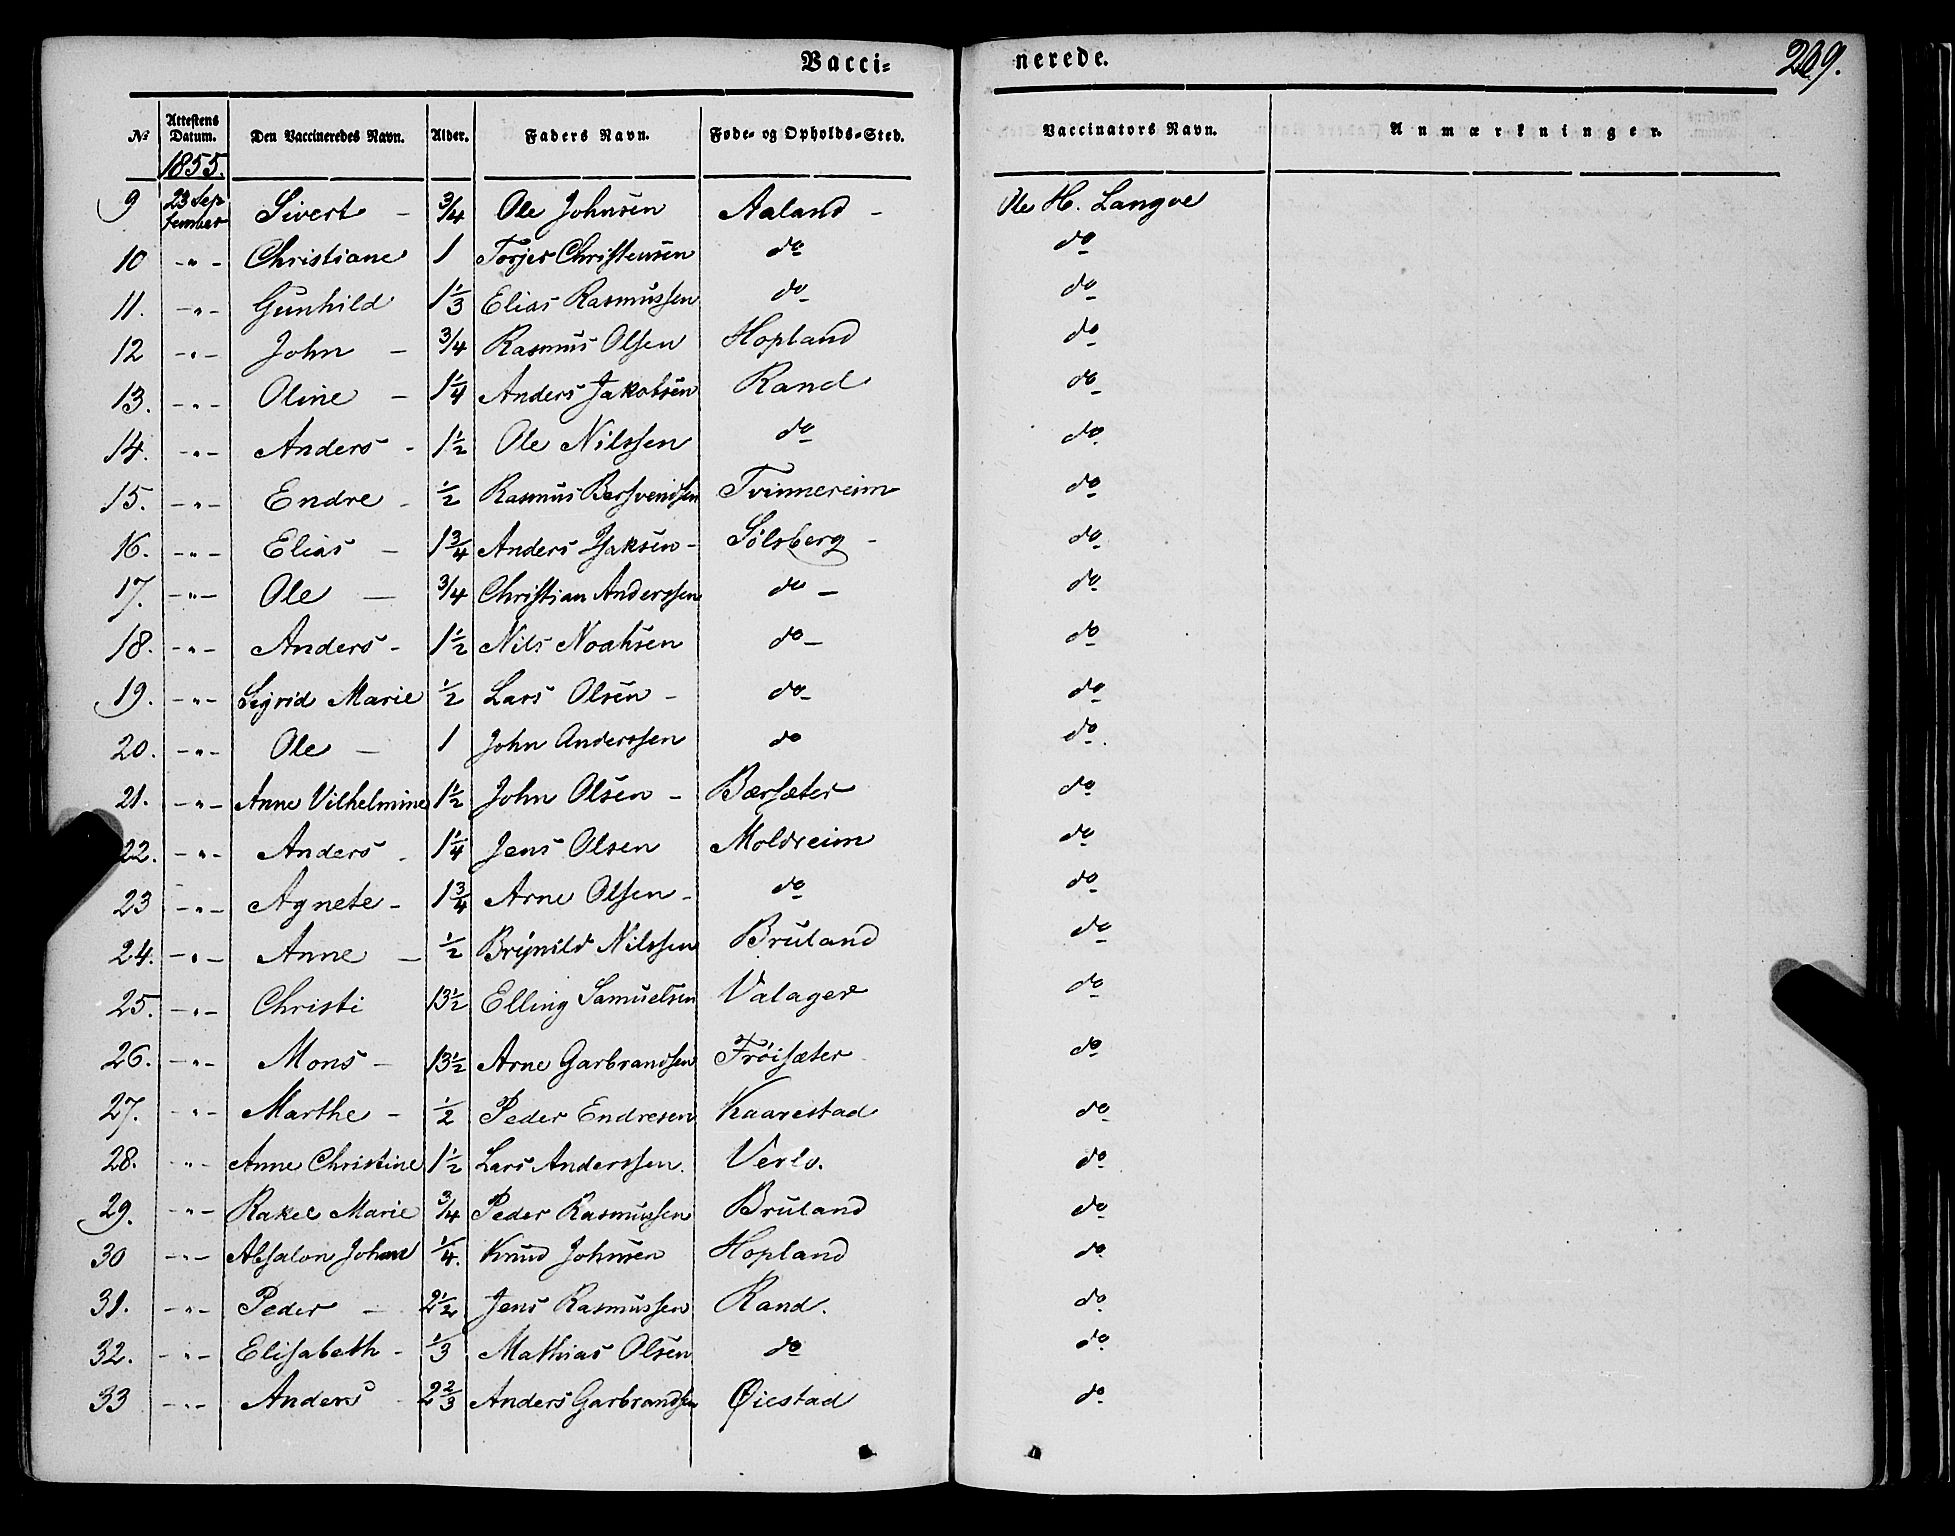 Vacci= nerede. 209.
№ Attestens Datum. Den Vaccineredes Navn. Alder. Faders Navn. Føde- og Opholds-Sted. Vaccinators Navn. Anmærkninger.
1855.
9 23 Sep tember Sivert - 3/4 Ole Johnsen Aaland - Ole H. Langve
10 -"- Christiane 1 Torjer Christensen do do
11. -"- Gunhild 1 1/3 Elias Rasmussen do do
12 -"- John - 3/4 Rasmus Olsen Hopland do
13. -"- Oline - 1 1/4 Anders Jakobsen Rand do
14. -"- Anders - 1 1/2 Ole Nilssen do do
15. -"- Endre - 1/2 Rasmus Bersvendsen Tvinnereim do
16. -"- Elias - 1 3/4 Anders Isaksen - Sölsberg - do
17. -"- Ole - 3/4 Christian Anderssen do - do
18. -"- Anders - 1 1/2 Nils Noahsen do - do
19. -"- Sigrid Marie 1/2 Lars Olsen - do - do
20. -"- Ole - 1 John Anderssen do do.
21. -"- Anne Vilhelmine 1 1/2 John Olsen - Bærsæter do
22. -"- Anders - 1 1/4 Jens Olsen Moldreim do
23 -"- Agnete - 1 3/4 Arne Olsen - do do
24. -"- Anne - 1/2 Brynild Nilssen Bruland do
25. -"- Christi 13 1/2 Elling Samuelsen Valager do
26. -"- Mons - 13 1/2 Arne Garbrandsen Tröisæter do
27. -"- Marthe - 1/2 Peder Endresen Kaarestad do
28. -"- Anne Christine 1 1/2 Lars Anderssen. Verlo. do
29. -"- Rakel Marie 3/4 Peder Rasmussen Bruland do
30 -"- Absalon Johan 1/4. Knud Johnsen Hopland do
31. -"- Peder - 2 1/2 Jens Rasmussen Rand. do
32. -"- Elisabeth - 1/3 Mathias Olsen do do
33 -"- Anders - 2 2/3 Anders Garbrandsen Øiestad do